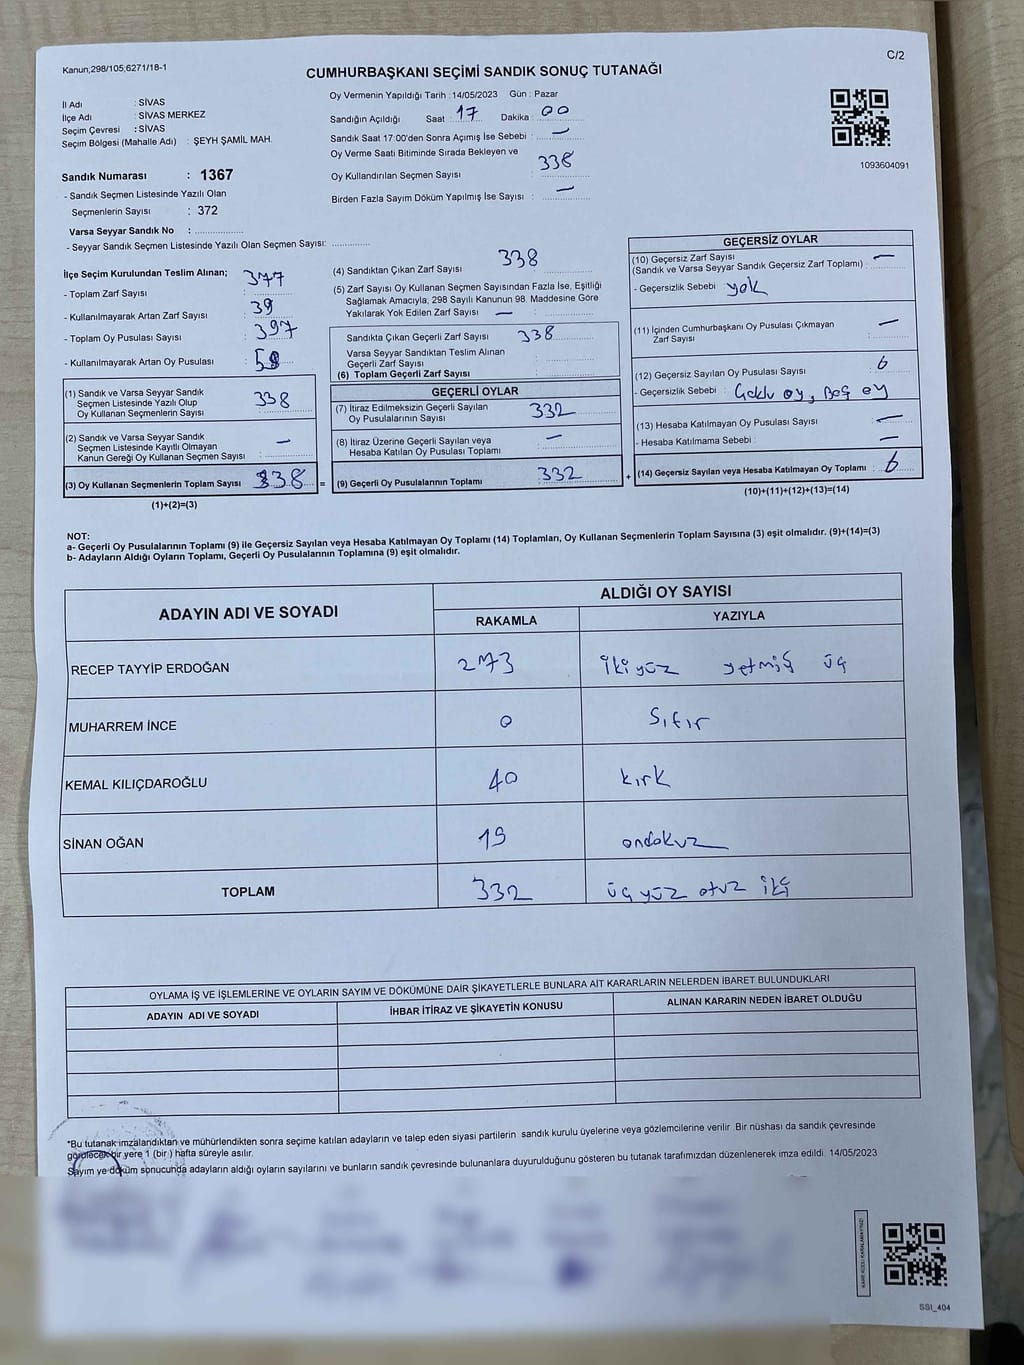 Kanun;298/105;6271/18-1
C/2
CUMHURBAŞKANI SEÇİMİ SANDIK SONUÇ TUTANAĞI
İl Adı : SİVAS
İlçe Adı : SİVAS MERKEZ
Seçim Çevresi : SİVAS
Seçim Bölgesi (Mahalle Adı) : ŞEYH ŞAMİL MAH.
Sandık Numarası : 1367
- Sandık Seçmen Listesinde Yazılı Olan
Seçmenlerin Sayısı : 372
Varsa Seyyar Sandık No : ................
- Seyyar Sandık Seçmen Listesinde Yazılı Olan Seçmen Sayısı: ............
Oy Vermenin Yapıldığı Tarih : 14/05/2023 Gün : Pazar
Sandığın Açıldığı Saat : 17 Dakika : 00
Sandık Saat 17:00'den Sonra Açımış İse Sebebi : —
Oy Verme Saati Bitiminde Sırada Bekleyen ve
Oy Kullandırılan Seçmen Sayısı : 338
Birden Fazla Sayım Döküm Yapılmış İse Sayısı : —
1093604091
İlçe Seçim Kurulundan Teslim Alınan;
- Toplam Zarf Sayısı : 377
- Kullanılmayarak Artan Zarf Sayısı : 39
- Toplam Oy Pusulası Sayısı : 397
- Kullanılmayarak Artan Oy Pusulası :
(1) Sandık ve Varsa Seyyar Sandık
Seçmen Listesinde Yazılı Olup
Oy Kullanan Seçmenlerin Sayısı : 338
(2) Sandık ve Varsa Seyyar Sandık
Seçmen Listesinde Kayıtlı Olmayan
Kanun Gereği Oy Kullanan Seçmen Sayısı : —
(3) Oy Kullanan Seçmenlerin Toplam Sayısı : 338 =
(1)+(2)=(3)
(4) Sandıktan Çıkan Zarf Sayısı : 338
(5) Zarf Sayısı Oy Kullanan Seçmen Sayısından Fazla İse, Eşitliği
Sağlamak Amacıyla, 298 Sayılı Kanunun 98. Maddesine Göre
Yakılarak Yok Edilen Zarf Sayısı : —
Sandıkta Çıkan Geçerli Zarf Sayısı : 338
Varsa Seyyar Sandıktan Teslim Alınan
Geçerli Zarf Sayısı :
(6) Toplam Geçerli Zarf Sayısı :
GEÇERLİ OYLAR
(7) İtiraz Edilmeksizin Geçerli Sayılan
Oy Pusulalarının Sayısı : 332
(8) İtiraz Üzerine Geçerli Sayılan veya
Hesaba Katılan Oy Pusulası Toplamı : —
(9) Geçerli Oy Pusulalarının Toplamı : 332 +
GEÇERSİZ OYLAR
(10) Geçersiz Zarf Sayısı
(Sandık ve Varsa Seyyar Sandık Geçersiz Zarf Toplamı) : —
- Geçersizlik Sebebi : yok
(11) İçinden Cumhurbaşkanı Oy Pusulası Çıkmayan
Zarf Sayısı : —
(12) Geçersiz Sayılan Oy Pusulası Sayısı : 6
- Geçersizlik Sebebi : Çoklu oy, Boş oy
(13) Hesaba Katılmayan Oy Pusulası Sayısı : —
- Hesaba Katılmama Sebebi : —
(14) Geçersiz Sayılan veya Hesaba Katılmayan Oy Toplamı : 6
(10)+(11)+(12)+(13)=(14)
NOT:
a- Geçerli Oy Pusulalarının Toplamı (9) ile Geçersiz Sayılan veya Hesaba Katılmayan Oy Toplamı (14) Toplamları, Oy Kullanan Seçmenlerin Toplam Sayısına (3) eşit olmalıdır. (9)+(14)=(3)
b- Adayların Aldığı Oyların Toplamı, Geçerli Oy Pusulalarının Toplamına (9) eşit olmalıdır.
ADAYIN ADI VE SOYADI ALDIĞI OY SAYISI
RAKAMLA YAZIYLA
RECEP TAYYİP ERDOĞAN 273 ikiyüz yetmiş üç
MUHARREM İNCE 0 Sıfır
KEMAL KILIÇDAROĞLU 40 kırk
SİNAN OĞAN 19 ondokuz
TOPLAM 332 üç yüz otuz iki
OYLAMA İŞ VE İŞLEMLERİNE VE OYLARIN SAYIM VE DÖKÜMÜNE DAİR ŞİKAYETLERLE BUNLARA AİT KARARLARIN NELERDEN İBARET BULUNDUKLARI
ADAYIN ADI VE SOYADI İHBAR İTİRAZ VE ŞİKAYETİN KONUSU ALINAN KARARIN NEDEN İBARET OLDUĞU
*Bu tutanak imzalandıktan ve mühürlendikten sonra seçime katılan adayların ve talep eden siyasi partilerin sandık kurulu üyelerine veya gözlemcilerine verilir .Bir nüshası da sandık çevresinde
görülecek bir yere 1 (bir ) hafta süreyle asılır.
Sayım ve döküm sonucunda adayların aldığı oyların sayılarını ve bunların sandık çevresinde bulunanlara duyurulduğunu gösteren bu tutanak tarafımızdan düzenlenerek imza edildi. 14/05/2023
SSI_404